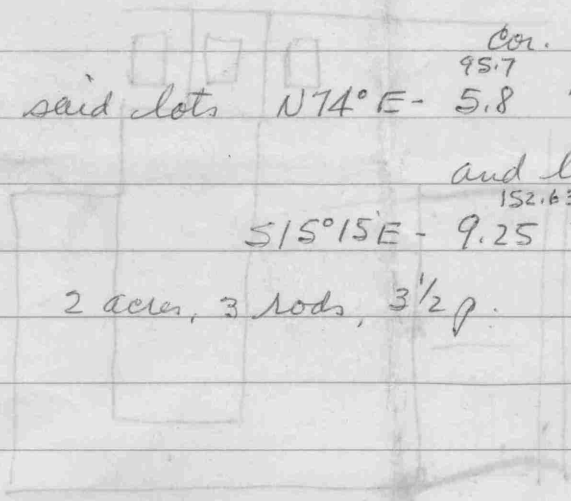 cor.
95.7
said lots N74°E- 5.8
and
152.63
S15°15'E - 9.25
2 acres, 3 rods, 3 1/2 p.